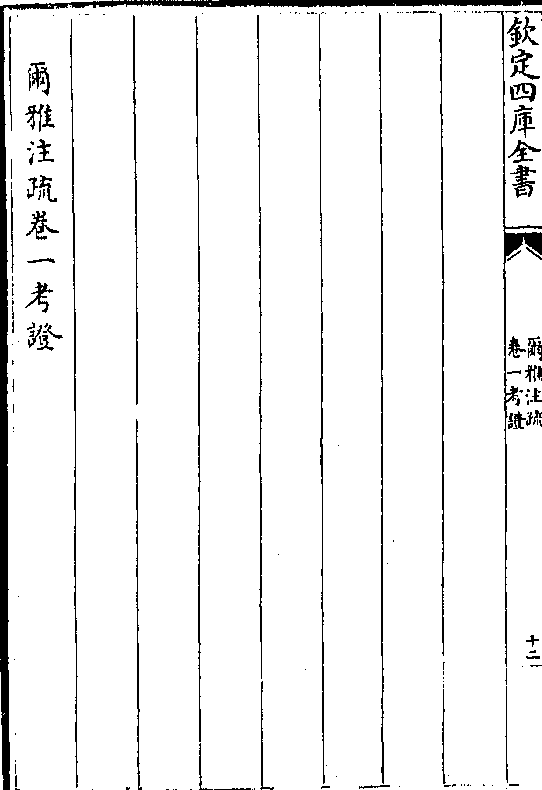 欽定四庫全書
爾雅注疏
卷一考證
十二
爾雅注疏卷一考證